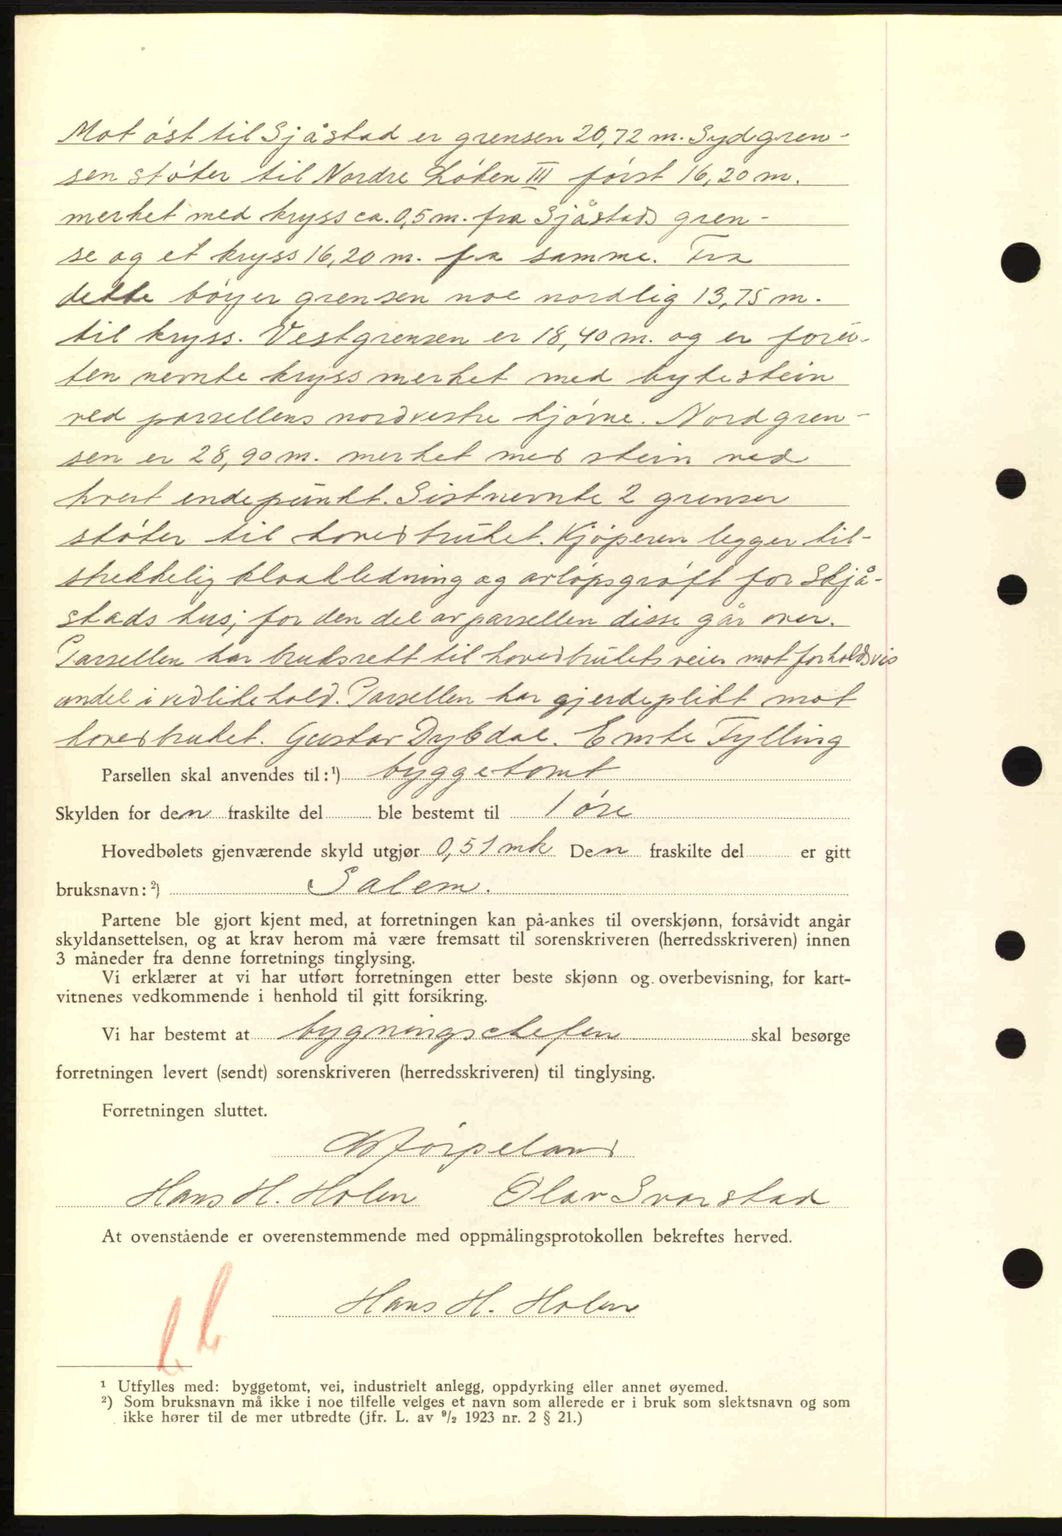 Mot öst til Sjåstad er grensen 20,72 m. Sydgren-
sen støter til Nordre Løken III först 16,20 m.
merket med kryss ca. 0,5 m. fra Sjåstads gren-
se og et kryss 16,20 m. fra samme. Fra
dette bøyer grensen noe nordlig 13,75 m.
til kryss. Vestgrensen er 18,40 m. og er foru-
ten nevnte kryss merket med bytestein
ved parsellens nordvestre hjörne. Nordgren-
sen er 28,90 m. merket med stein ved
hvert endepunkt. Sistnevnte 2 grenser
støter til hovedbruket. Kjöperen legger til-
strekkelig kloakkledning og avlöpsgröft for Skjå-
stads hus; for den del av parsellen disse går over.
Parsellen har bruksrett til hovedbrukets veier mot forholdsvis
andel i vedlikehold. Parsellen har gjerdeplikt mot
hovedbruket. Gustav Dybdal. Emte Tylling
Parsellen skal anvendes til:¹) byggetomt
Skylden for den fraskilte del ble bestemt til 1 øre
Hovedbølets gjenværende skyld utgjør 0,51 mk Den fraskilte del er gitt
bruksnavn: ²) Salem.
Partene ble gjort kjent med, at forretningen kan på-ankes til overskjønn, forsåvidt angår
skyldansettelsen, og at krav herom må være fremsatt til sorenskriveren (herredsskriveren) innen
3 måneder fra denne forretnings tinglysing.
Vi erklærer at vi har utført forretningen etter beste skjønn og overbevisning, for kart-
vitnenes vedkommende i henhold til gitt forsikring.
Vi har bestemt at bygningschefen skal besørge
forretningen levert (sendt) sorenskriveren (herredsskriveren) til tinglysing.
Forretningen sluttet.
Jörpeland
Hans H. Holen Olav Svorstad
At ovenstående er overenstemmende med oppmålingsprotokollen bekreftes herved.
Hans H. Holen
¹ Utfylles med: byggetomt, vei, industrielt anlegg, oppdyrking eller annet øyemed.
²) Som bruksnavn må ikke i noe tilfelle velges et navn som allerede er i bruk som slektsnavn og som
ikke hører til de mer utbredte (jfr. L. av ⁹/₂ 1923 nr. 2 § 21.)